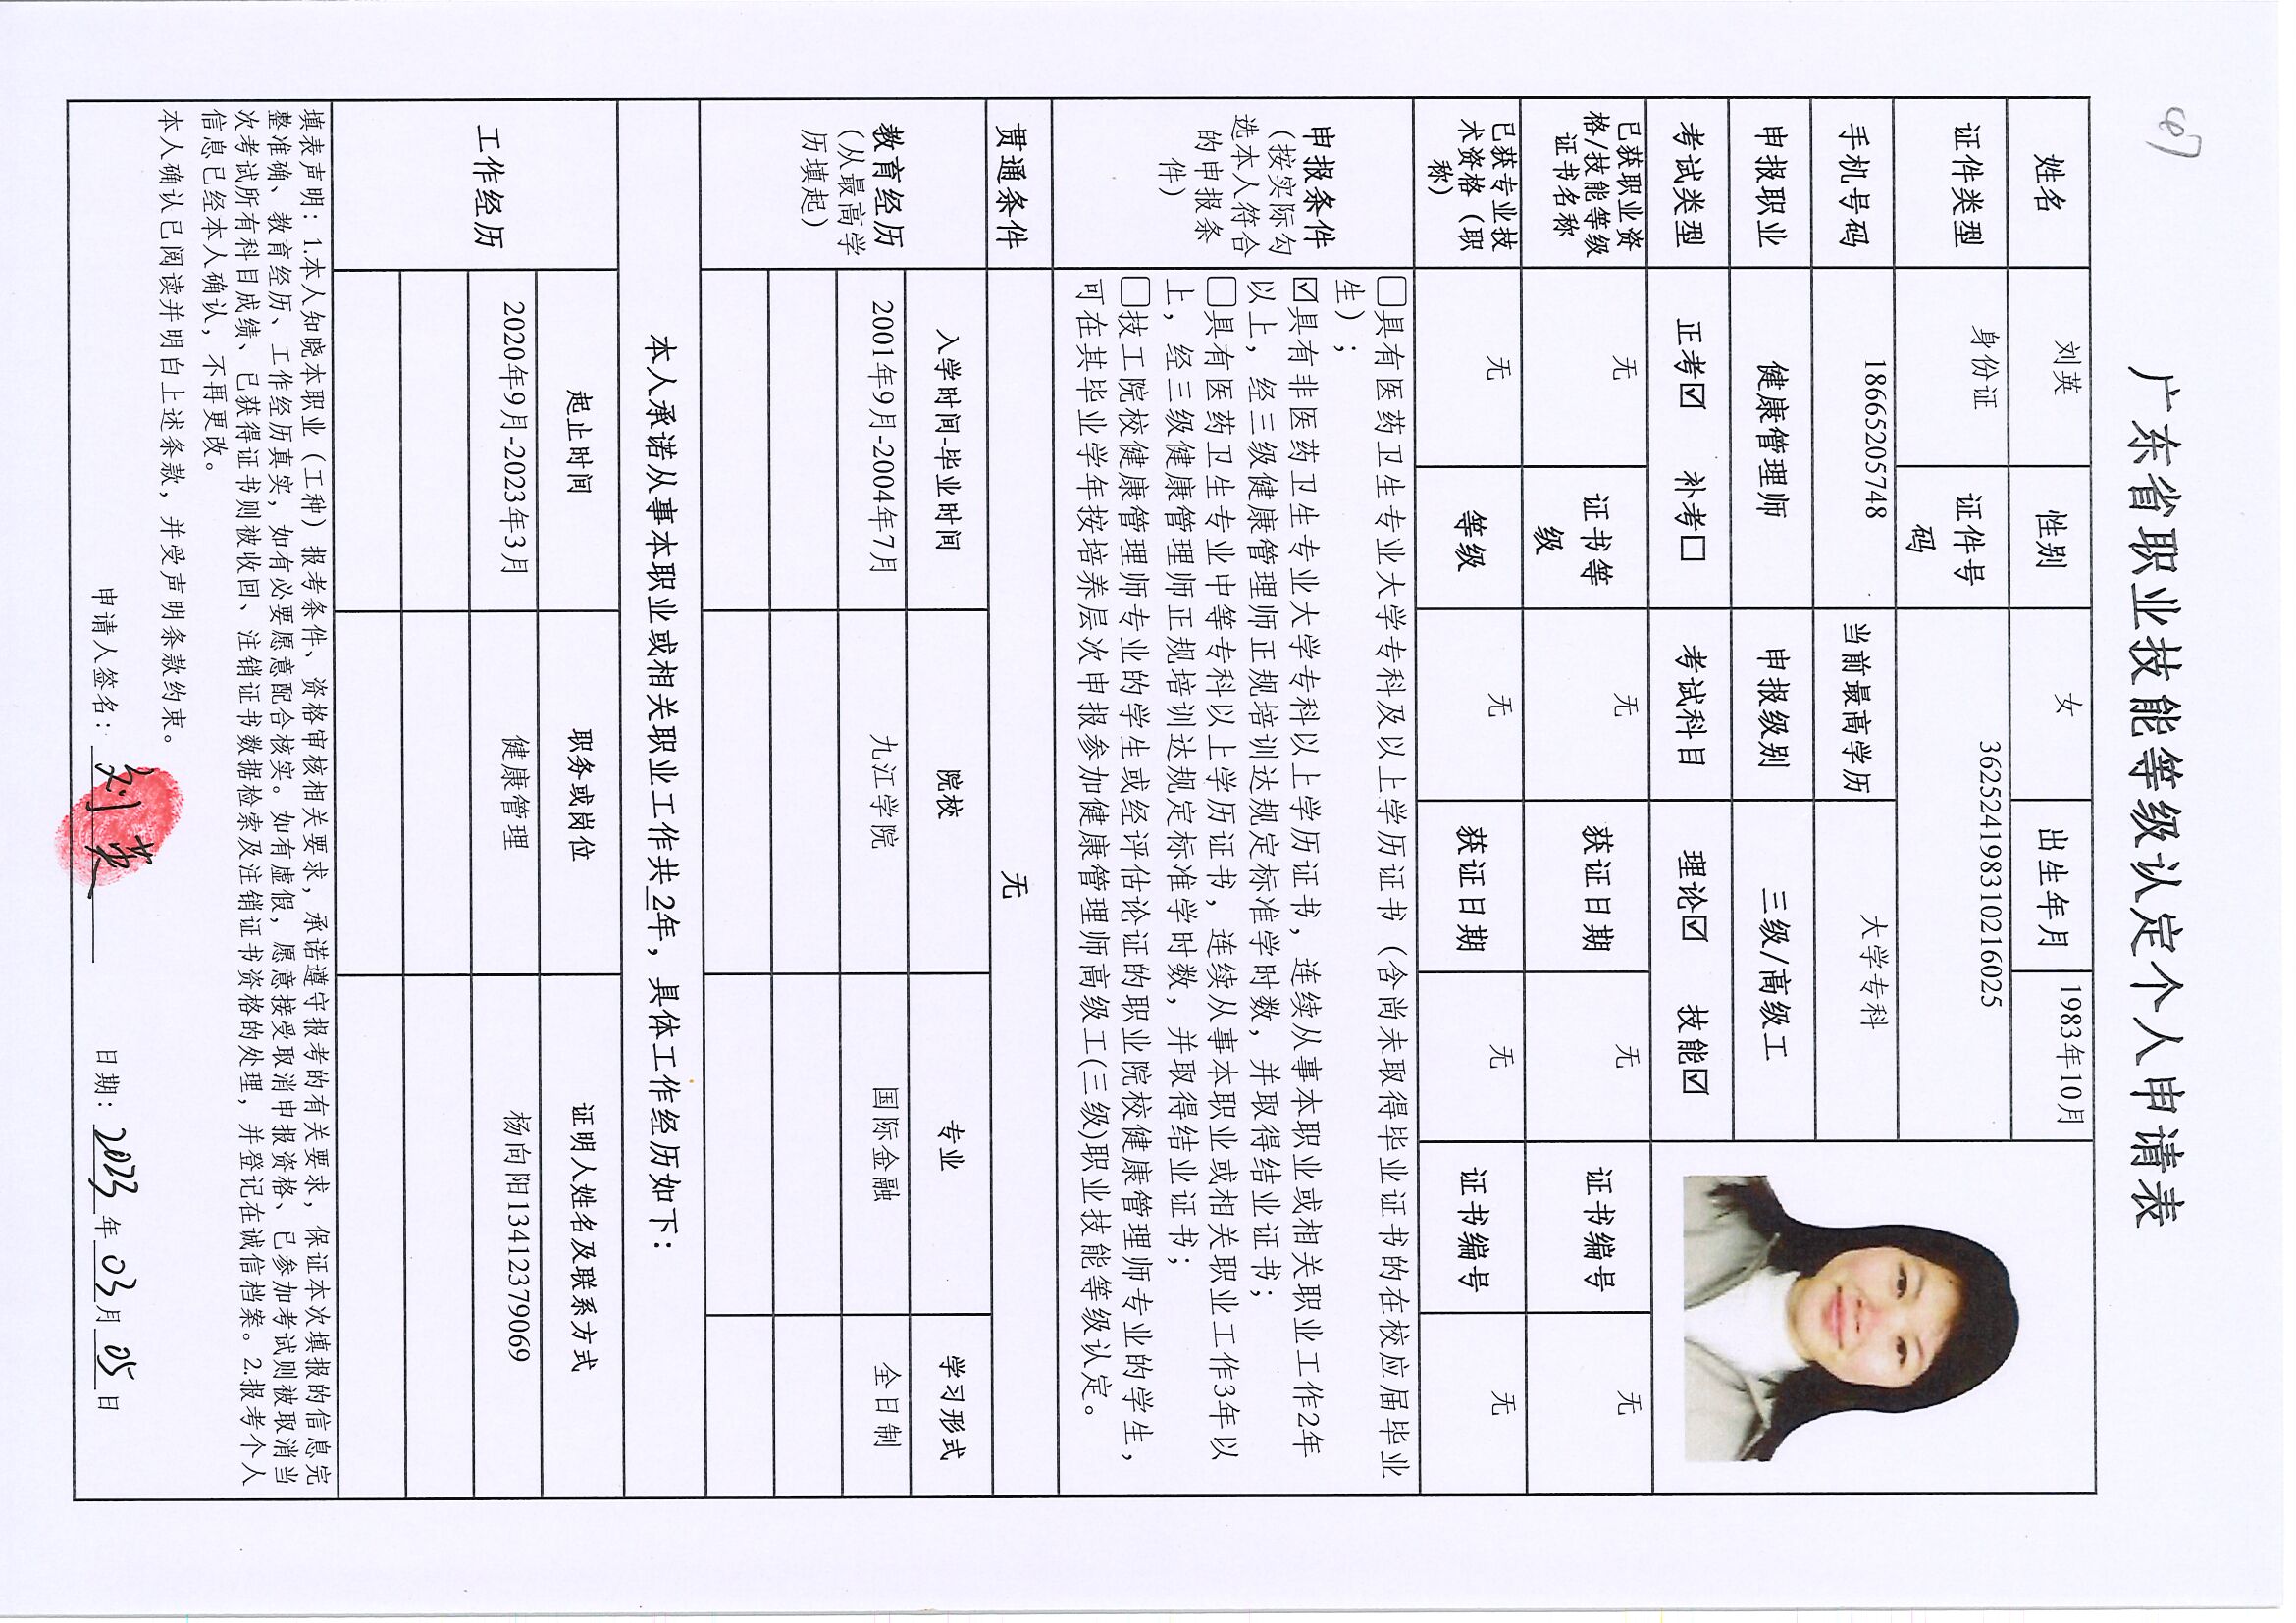 67
广东省职业技能等级认定个人申请表
姓名 刘英 性别 女 出生年月 1983年10月
证件类型 身份证 证件号码 362524198310216025
手机号码 18665205748 当前最高学历 大学专科
申报职业 健康管理师 申报级别 三级/高级工
考试类型 正考☑ 补考☐ 考试科目 理论☑ 技能☑
已获职业资
格/技能等级
证书名称 无 证书等级 无 获证日期 无 证书编号 无
已获专业技
术资格（职
称） 无 等级 无 获证日期 无 证书编号 无
申报条件
（按实际勾
选本人符合
的申报条
件）
☐具有医药卫生专业大学专科及以上学历证书（含尚未取得毕业证书的在校应届毕业
生）；
☑具有非医药卫生专业大学专科以上学历证书，连续从事本职业或相关职业工作2年
以上，经三级健康管理师正规培训达规定标准学时数，并取得结业证书；
☐具有医药卫生专业中等专科以上学历证书，连续从事本职业或相关职业工作3年以
上，经三级健康管理师正规培训达规定标准学时数，并取得结业证书；
☐技工院校健康管理师专业的学生或经评估论证的职业院校健康管理师专业的学生，
可在其毕业学年按培养层次申报参加健康管理师高级工(三级)职业技能等级认定。
贯通条件 无
教育经历
（从最高学
历填起）
入学时间-毕业时间 院校 专业 学习形式
2001年9月-2004年7月 九江学院 国际金融 全日制
本人承诺从事本职业或相关职业工作共2年，具体工作经历如下：
工作经历
起止时间 职务或岗位 证明人姓名及联系方式
2020年9月-2023年3月 健康管理 杨向阳13412379069
填表声明：1.本人知晓本职业（工种）报考条件、资格审核相关要求，承诺遵守报考的有关要求，保证本次填报的信息完
整准确、教育经历、工作经历真实，如有必要愿意配合核实。如有虚假，愿意接受取消申报资格、已参加考试则被取消当
次考试所有科目成绩、已获得证书则被收回、注销证书数据检索及注销证书资格的处理，并登记在诚信档案。2.报考个人
信息已经本人确认，不再更改。
本人确认已阅读并明白上述条款，并受声明条款约束。
申请人签名：刘英 日期：2023年03月05日